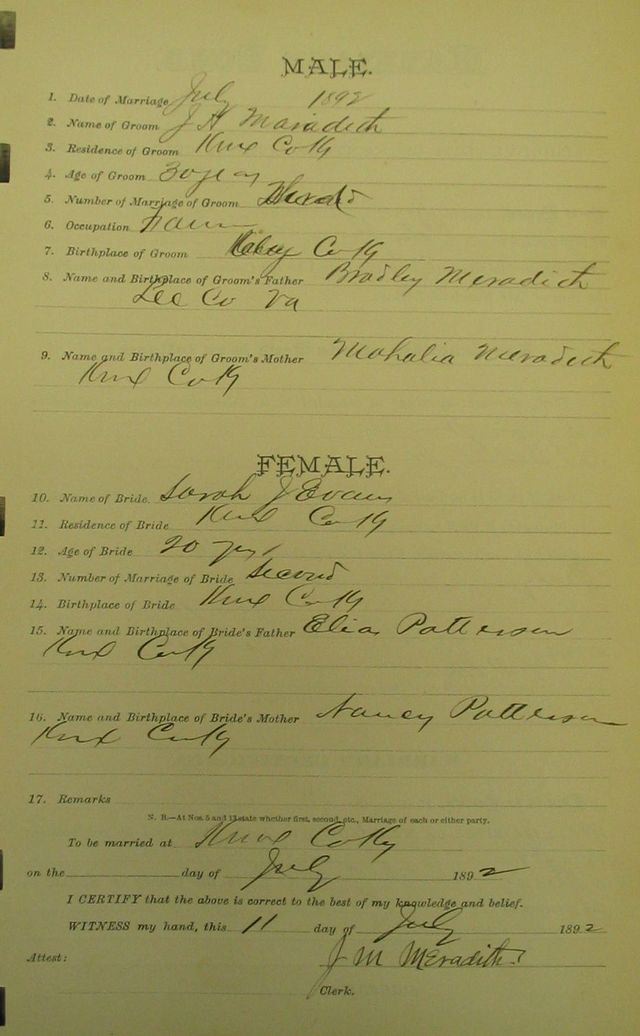 MALE.
1. Date of Marriage July 1892
2. Name of Groom J H Meradith
3. Residence of Groom Knox Co Ky
4. Age of Groom 30 years
5. Number of Marriage of Groom
6. Occupation Farmer
7. Birthplace of Groom Co Ky
8. Name and Birthplace of Groom's Father Bradley Meradith
Lee Co Va
9. Name and Birthplace of Groom's Mother Mahalia Meradith
Knox Co Ky
FEMALE.
10. Name of Bride. Sarah J Evans
11. Residence of Bride Knox Co Ky
12. Age of Bride 20 yrs
13. Number of Marriage of Bride Second
14. Birthplace of Bride Knox Co Ky
15. Name and Birthplace of Bride's Father Elias Patterson
Knox Co Ky
16. Name and Birthplace of Bride's Mother Nancy Patterson
Knox Co Ky
17. Remarks
N. B.—At Nos. 5 and 13 state whether first, second, etc., Marriage of each or either party.
To be married at Knox Co Ky
on the day of July 1892
I CERTIFY that the above is correct to the best of my knowledge and belief.
WITNESS my hand, this 11 day of July 1892
Attest: J M Meradith
Clerk.